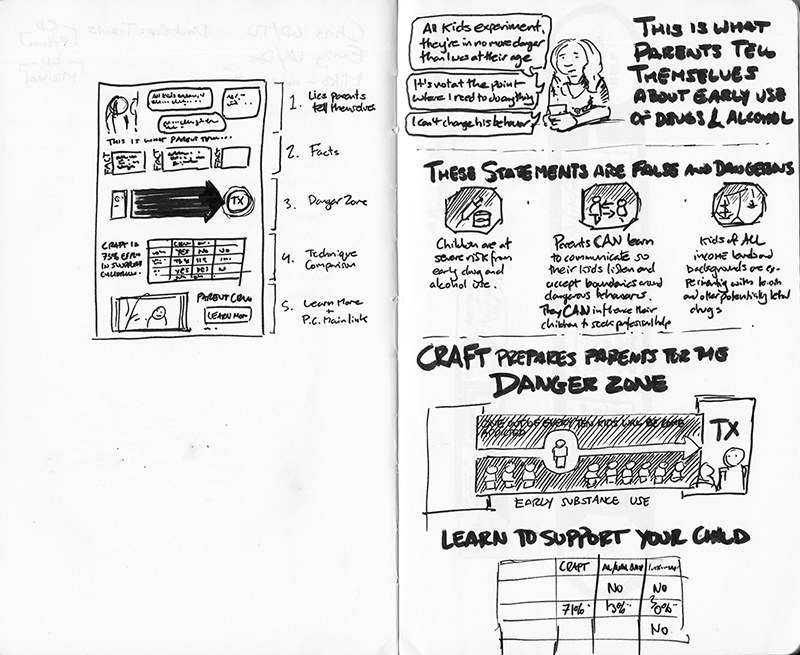 All kids experiment,
1. Lies parents
tell themselves
THIS IS WHAT PARENT TELL...
FACT
FACT
FACT
2. Facts
TX
3. Danger Zone
CRAFT IS
IN SUPPORT
YES NO NO
YES
4. Technique
Comparison
PARENT
LEARN MORE
5. Learn More
+
P.C. Main links
All kids experiment,
they're in no more danger
than I was at their age
It's not at the point
where I need to do anything
I can't change his behavior
THIS IS WHAT
PARENTS TELL
THEMSELVES
ABOUT EARLY USE
OF DRUGS & ALCOHOL
THESE STATEMENTS ARE FALSE AND DANGEROUS
Children are at
severe risk from
early drug and
alcohol use.
Parents CAN learn
to communicate so
their kids listen and
accept boundaries around
dangerous behaviors.
They CAN influence their
children to seek professional help
Kids of ALL
income levels and
backgrounds are ex-
perimenting with
and other potentially lethal
drugs
CRAFT PREPARES PARENTS FOR THE
DANGER ZONE
ONE OUT OF EVERY TEN KIDS WILL BECOME
ADDICTED
TX
EARLY SUBSTANCE USE
LEARN TO SUPPORT YOUR CHILD
CRAFT
NO NO
71% 30%
NO